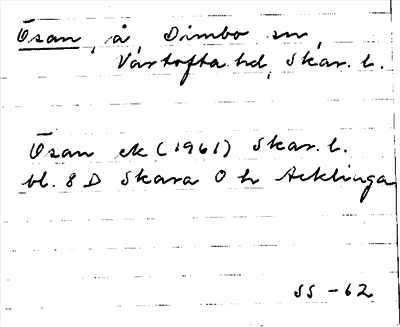 Ösan, å, Dimbo sn,
Vartofta hd, Skar. l.
Ösan ek (1961) Skar. l.
bl. 8 D Skara O hr Acklinga
SS -62